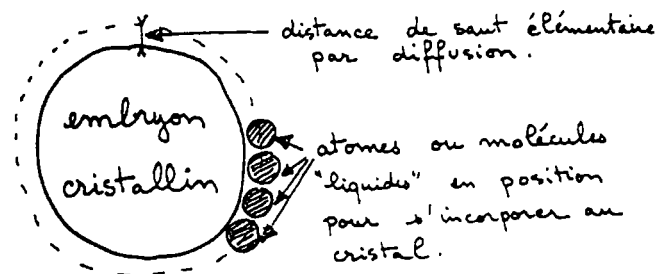 distance de saut élémentaire
par diffusion.
embryon
cristallin
atomes ou molécules
"liquides" en position
pour s'incorporer au
cristal.